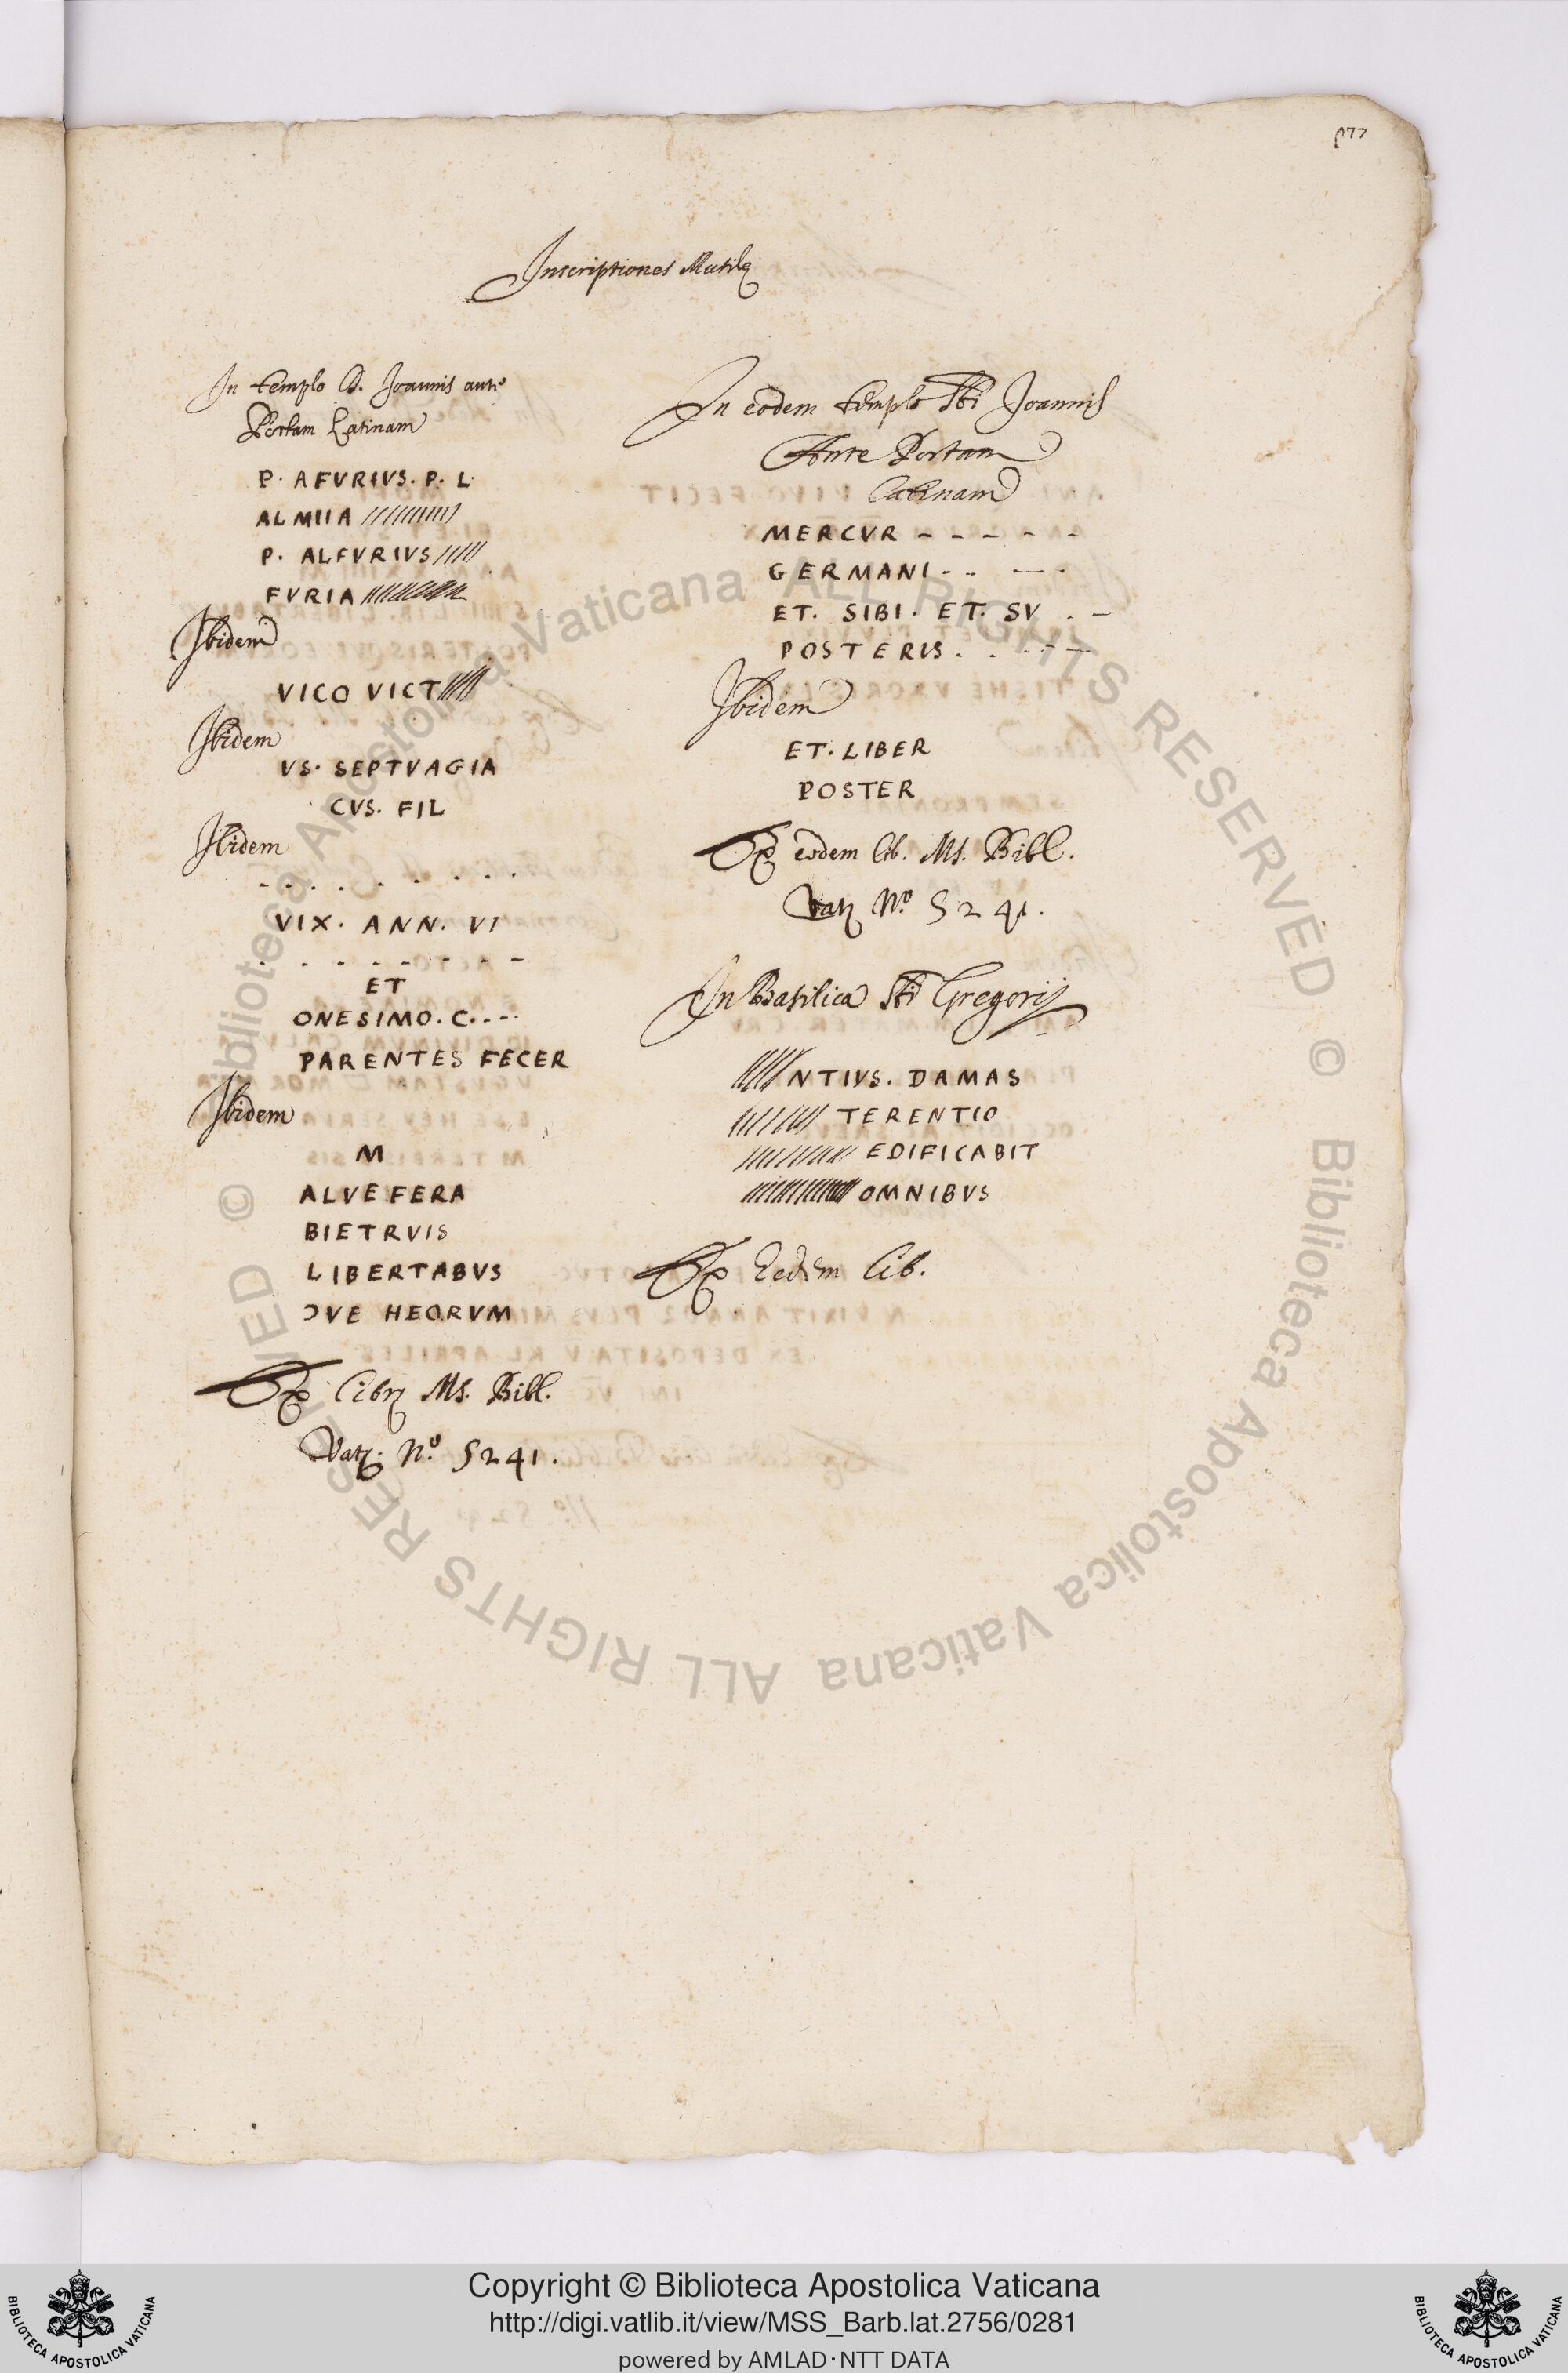 Inscriptiones Mutilę
In templo D. Joannis ante
Portam Latinam
P. AFVRIVS. P. L
ALMIIA ///////////
P. ALFVRIVS /////
FVRIA ////////////
Ibidem
VICO VICT/////
Ibidem
VS. SEPTVAGIA
CVS. FIL
Ibidem
. - . . . - . . . .
VIX. ANN. VI
. - - - - - - -
ET
ONESIMO. C . . - .
PARENTES FECER
Ibidem
M
ALVEFERA
BIETRVIS
LIBERTABVS
ƆVE HEORVM
Ex Libr. Ms. Bibl.
Vat. No. 5241.
In eodem templo Sti Joannis
Ante Portam
Latinam
MERCVR - - - - -
GERMANI - . . - - .
ET. SIBI. ET. SV . -
POSTERIS . . - - -
Ibidem
ET. LIBER
POSTER
Ex eodem lib. Ms. Bibl.
Vat. No. 5241.
In Basilica Sti Gregorij
/////NTIVS. DAMAS
//////// TERENTIO
////////// EDIFICABIT
//////////// OMNIBVS
Ex Eedem Lib.
© Biblioteca Apostolica Vaticana ALL RIGHTS RESERVED © Biblioteca Apostolica Vaticana ALL RIGHTS RESERVED
Copyright © Biblioteca Apostolica Vaticana
http://digi.vatlib.it/view/MSS_Barb.lat.2756/0281
powered by AMLAD·NTT DATA
BIBLIOTECA APOSTOLICA VATICANA
BIBLIOTECA APOSTOLICA VATICANA